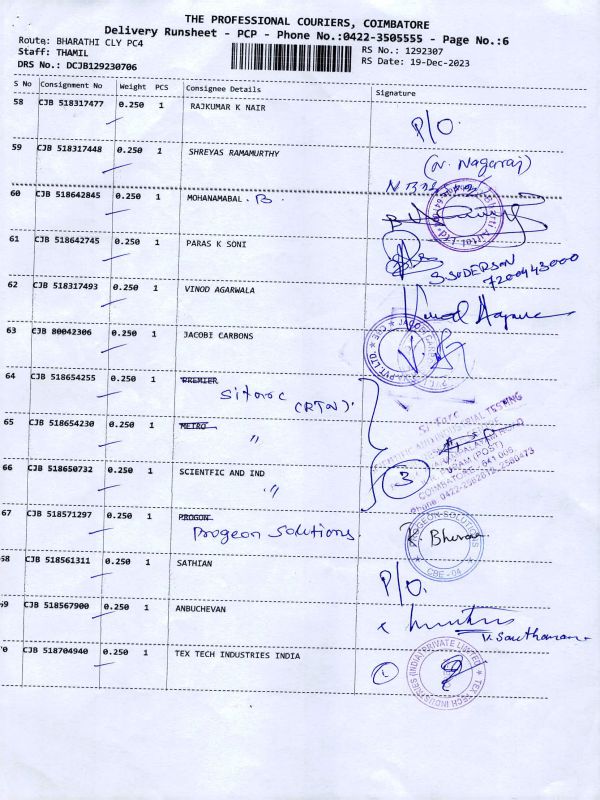 THE PROFESSIONAL COURIERS, COIMBATORE
Delivery Runsheet - PCP - Phone No.:0422-3505555 - Page No.:6
Route: BHARATHI CLY PC4 RS No.: 1292307
Staff: THAMIL RS Date: 19-Dec-2023
DRS No.: DCJB129230706
S No Consignment No Weight PCS Consignee Details Signature
58 CJB 518317477 0.250 1 RAJKUMAR K NAIR
P/O.
59 CJB 518317448 0.250 1 SHREYAS RAMAMURTHY
(N. Nagaraj)
60 CJB 518642845 0.250 1 MOHANAMABAL . B.
61 CJB 518642745 0.250 1 PARAS K SONI
7200443000
62 CJB 518317493 0.250 1 VINOD AGARWALA
63 CJB 80042306 0.250 1 JACOBI CARBONS
64 CJB 518654255 0.250 1 PREMIER
Sitarc
(RTN)
65 CJB 518654230 0.250 1 METRO
"
66 CJB 518650732 0.250 1 SCIENTFIC AND IND
"
3
COIMBATORE - 641 006
67 CJB 518571297 0.250 1 PROGON
Progeon Solutions
PROGEON SOLUTIONS
CBE - 04
R. Bhuvan
68 CJB 518561311 0.250 1 SATHIAN
P/O.
69 CJB 518567900 0.250 1 ANBUCHEVAN
70 CJB 518704940 0.250 1 TEX TECH INDUSTRIES INDIA
1
TEX TECH INDUSTRIES (INDIA) PRIVATE LIMITED